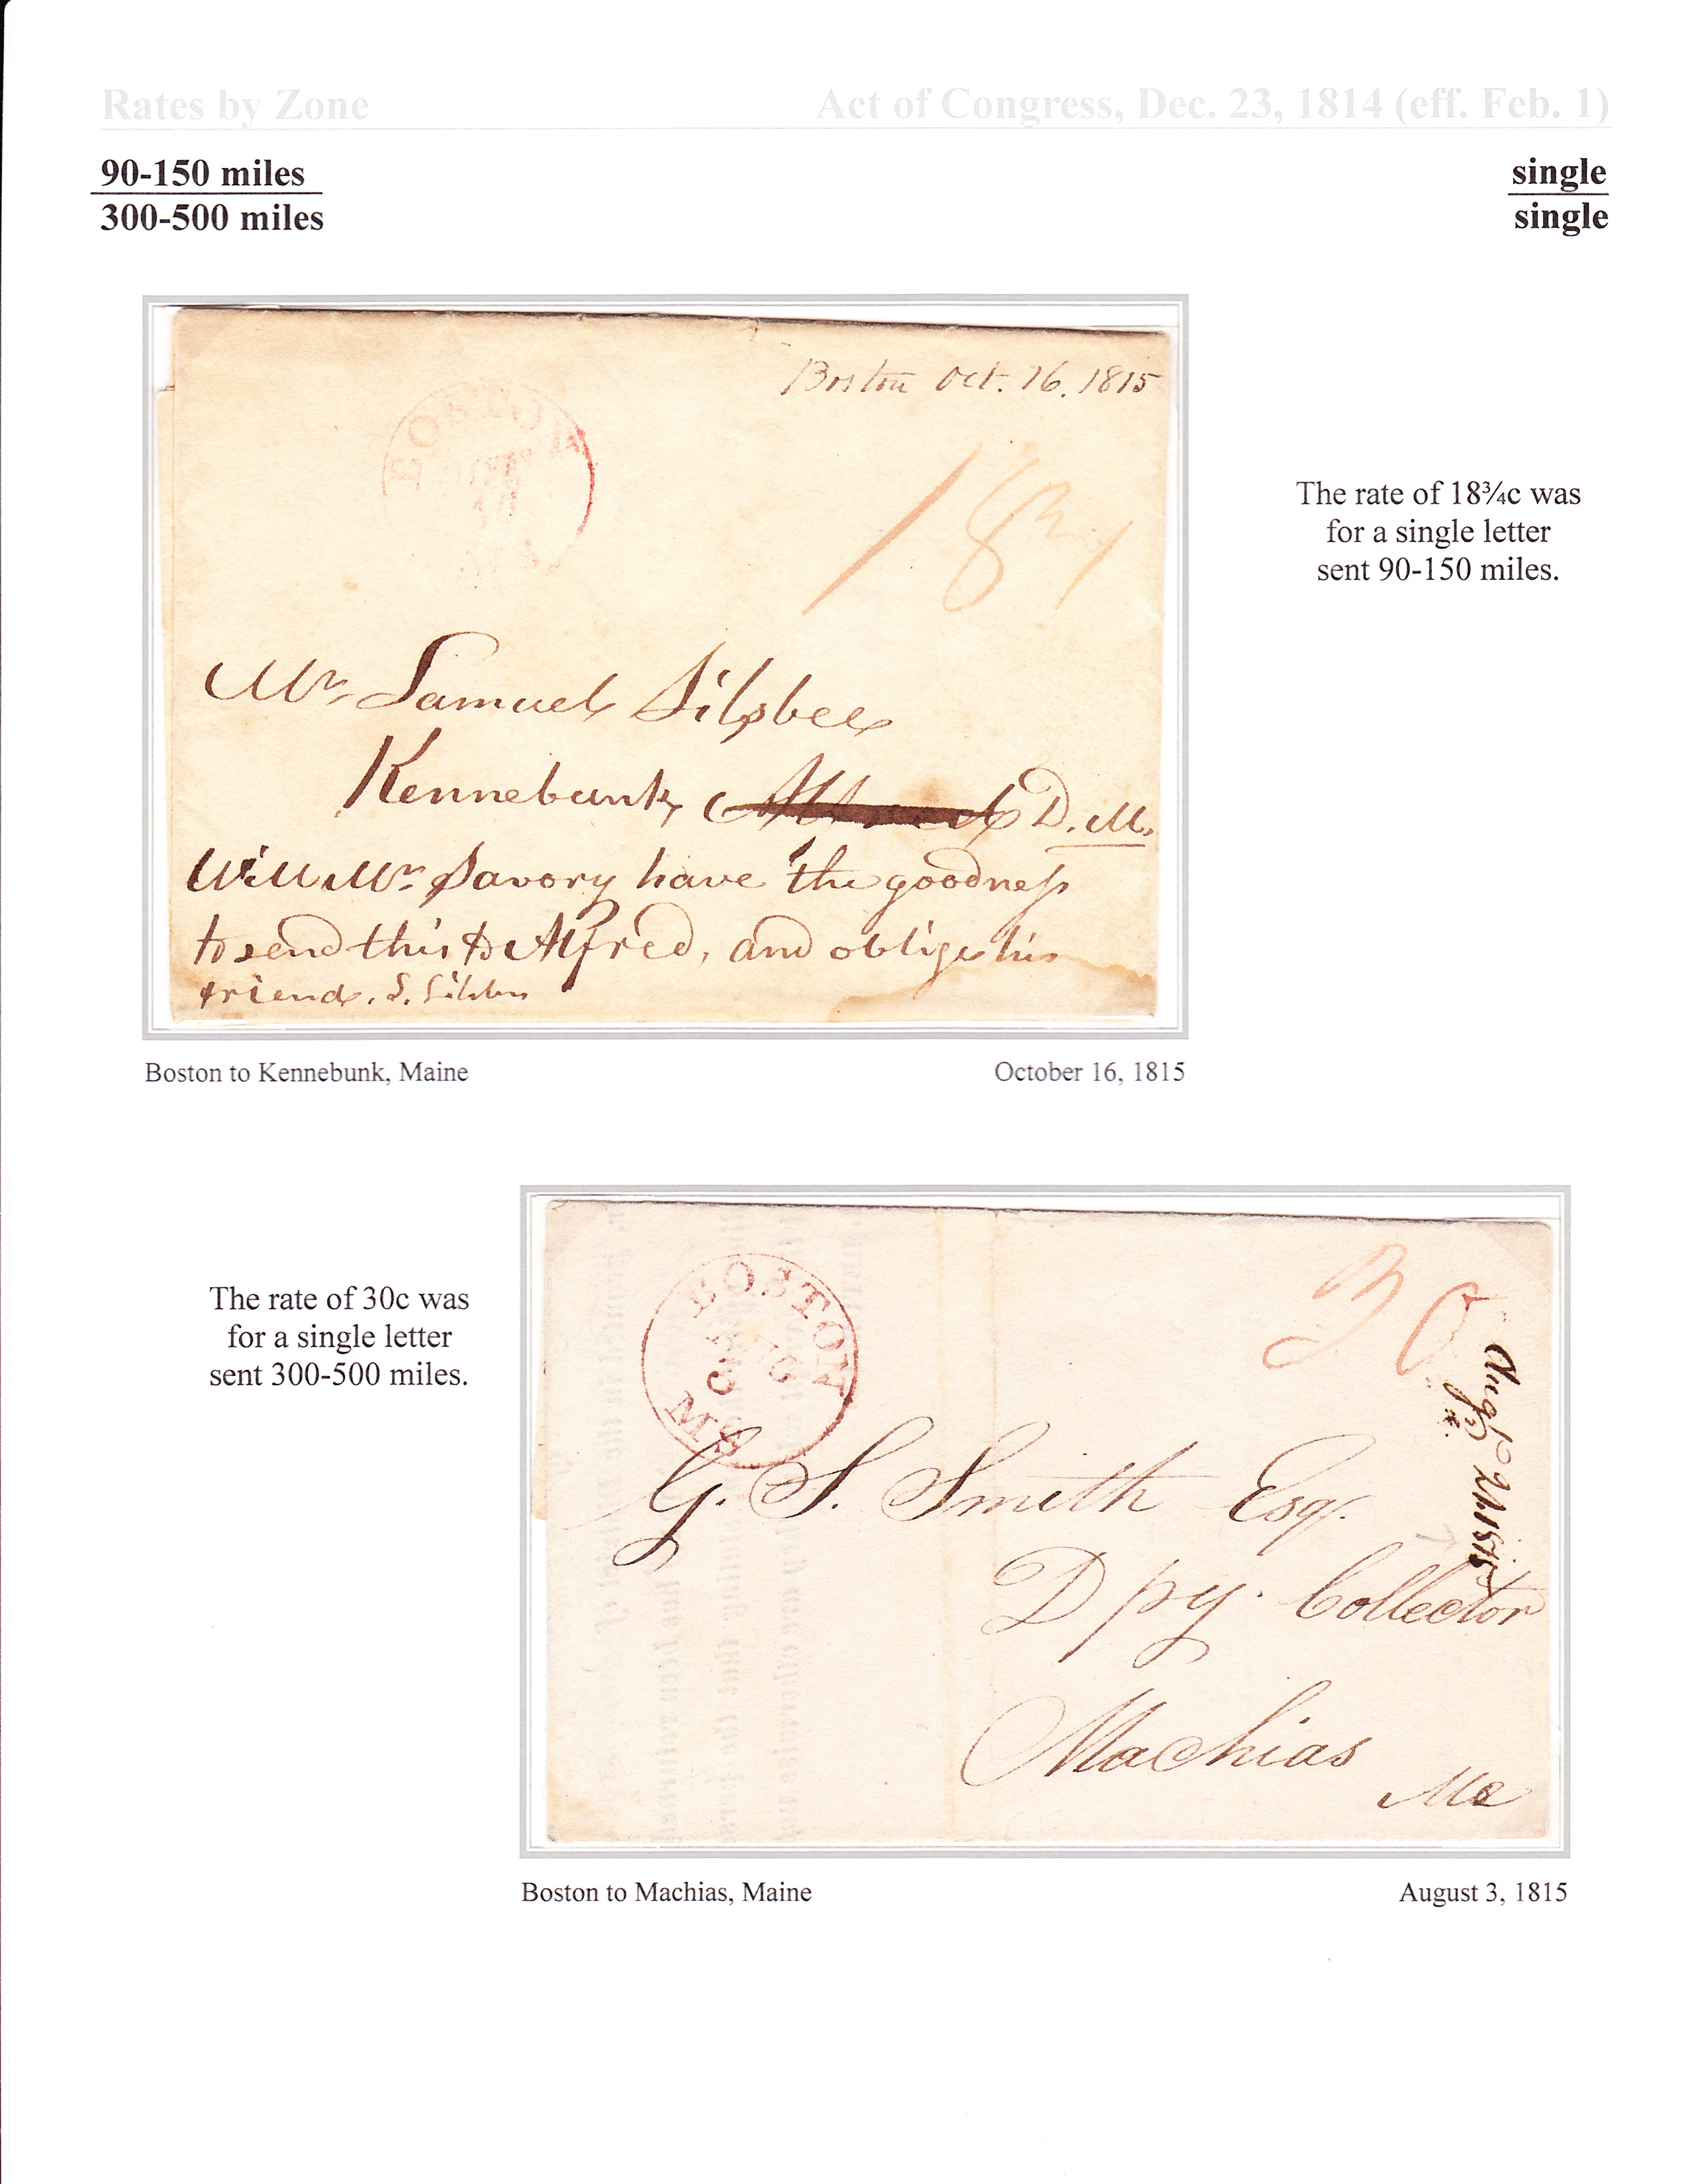 Rates by Zone
Act of Congress, Dec. 23, 1814 (eff. Feb. 1)
90-150 miles
300-500 miles
single
single
Boston Oct. 16. 1815
BOSTON
18¾
Mr. Samuel Silsbee
Kennebunk, D. M.
Will Mr. Savory have the goodness
to send this to Alfred, and oblige his
friend. S. Silsbee
The rate of 18¾c was
for a single letter
sent 90-150 miles.
Boston to Kennebunk, Maine
October 16, 1815
The rate of 30c was
for a single letter
sent 300-500 miles.
BOSTON
AUG
3
MS
30
G. S. Smith Esqr.
Dpy. Collector
Machias
Me
Boston to Machias, Maine
August 3, 1815